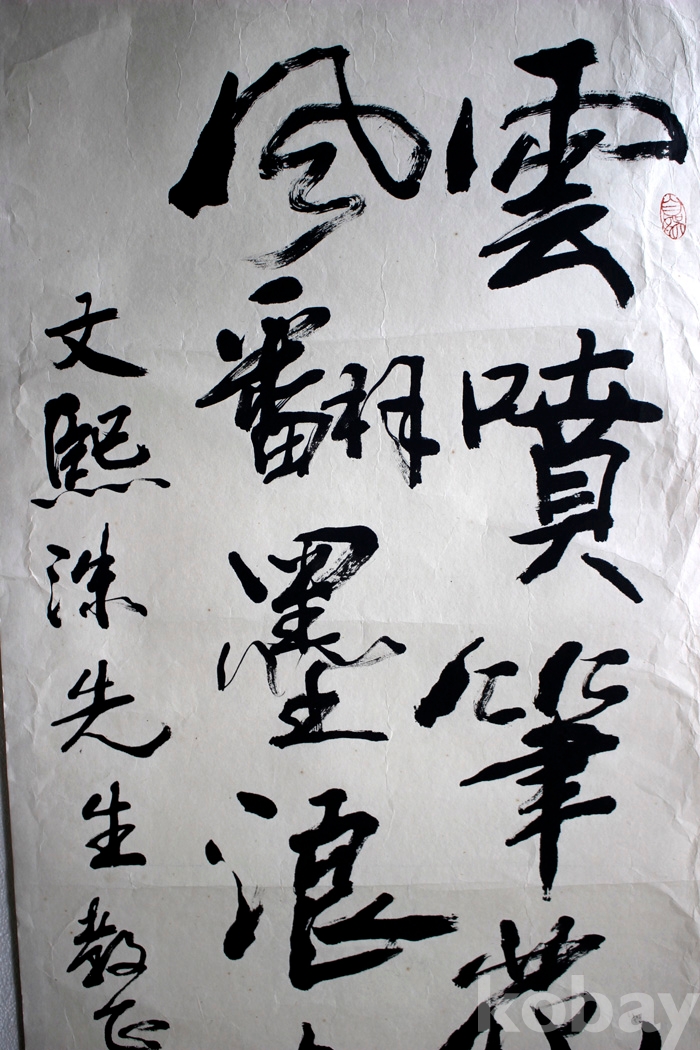 雲噴筆花
風翻墨浪
文熙洙先生教正
kobay